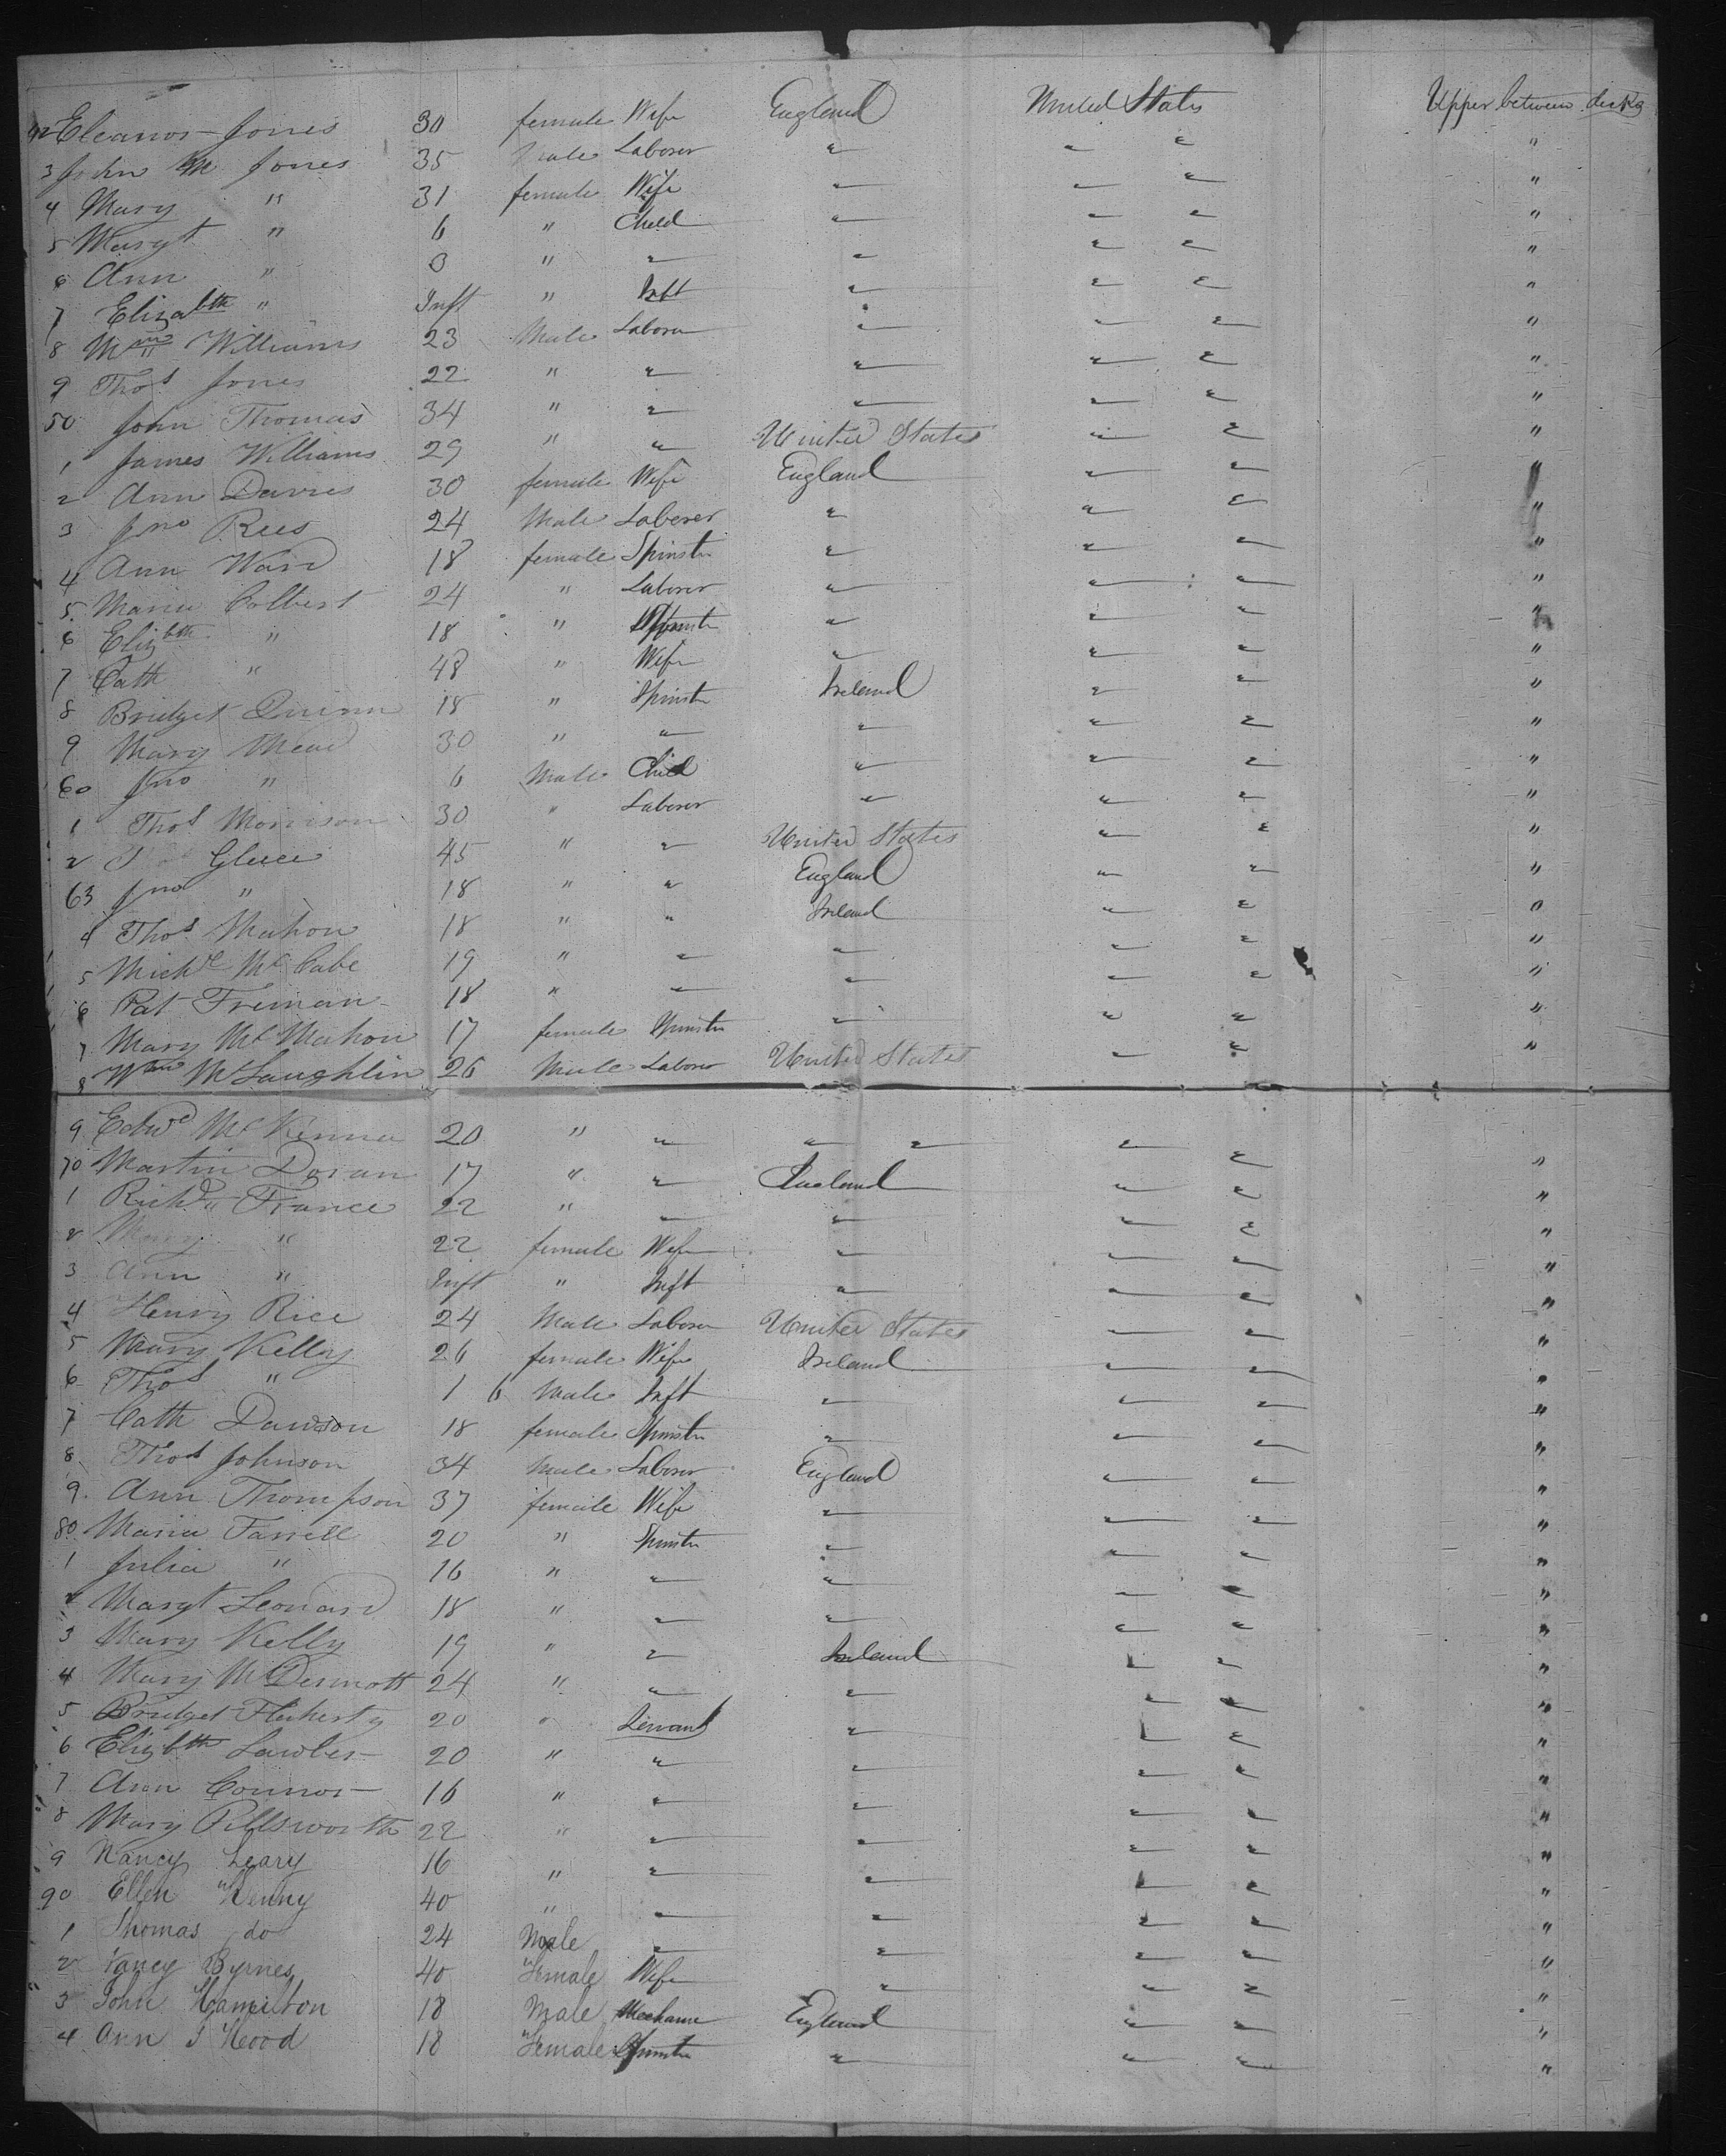 42 Eleanor Jones 30 female Wife England United States Upper between decks
3 John M Jones 35 Male Laborer " " " "
4 Mary " 31 female Wife " " " "
5 Margt " 6 " Child " " " "
6 Ann " 3 " " " " " "
7 Elizabth " Inft " Inft " " " "
8 Wm Williams 23 Male Laborer " " " "
9 Thos Jones 22 " " " " " "
50 John Thomas 34 " " " " " "
1 James Williams 29 " " United States " " "
2 Ann Davies 30 female Wife England " "
3 Jno Rees 24 Male Laborer " " " "
4 Ann Ward 18 female Spinster " " " "
5 Maria Colbert 24 " Laborer " " " "
6 Elizbth " 18 " Spinster " " " "
7 Cath " 48 " Wife " " " "
8 Bridget Quinn 18 " Spinstr Ireland " " "
9 Mary Mead 30 " " " " " "
60 Jno " 6 Male Child " " " "
1 Thos Morrison 30 " Laborer " " " "
2 Gluce 45 " " United States " " "
63 Jno " 18 " " England " " "
4 Thos Mahon 18 " " Ireland " " "
5 Michl McCabe 19 " " " " " "
6 Pat Freman 18 " " " " " "
7 Mary McMahon 17 female Spinstr " " " "
8 Wm McLaughlin 26 Male Laborer United States " " "
9 Edwd McKenna 20 " " " " " "
70 Martin Doran 17 " " England " " "
1 Richd France 22 " " " " " "
2 Mary " 22 female Wife " " " "
3 Ann " Inft " Inft " " " "
4 Henry Rice 24 Male Laborer United States " " "
5 Mary Kelley 26 female Wife Ireland " " "
6 Thos " 1 6 Male Inft " " " "
7 Cath Dawson 18 female Spinstr " " " "
8 Thos Johnson 34 Male Laborer England " " "
9 Ann Thompson 37 female Wife " " " "
80 Maria Farrell 20 " Spinstr " " " "
1 Julia " 16 " " " " " "
2 Margt Leonard 18 " " " " " "
3 Mary Kelly 19 " " Ireland " " "
4 Mary McDermott 24 " " " " " "
5 Bridget Flaherty 20 " Servant " " " "
6 Elizbth Lawler 20 " " " " " "
7 Ann Connor 16 " " " " " "
8 Mary Pillsworth 22 " " " " " "
9 Nancy Leary 16 " " " " " "
90 Ellen Kenny 40 " " " " " "
1 Thomas do 24 Male " " " " "
2 Nancy Byrnes 40 Female Wife " " " "
3 John Hamilton 18 Male Mechanic England " " "
4 Ann J Hood 18 Female Spinstr " " " "